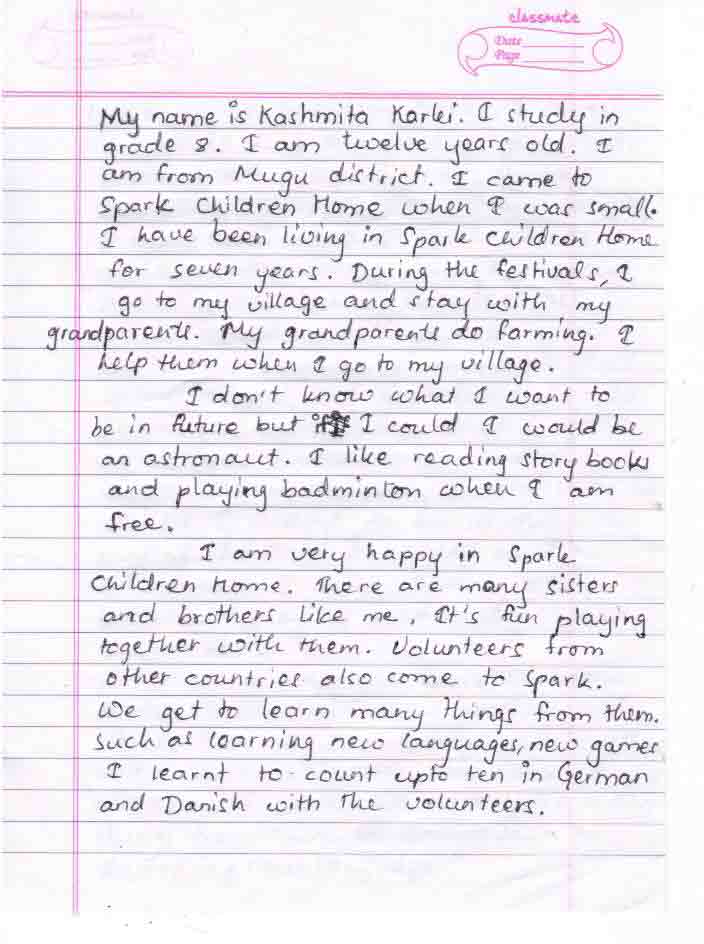 classmate
Date
Page
My name is Kashmita Karki. I study in
grade 8. I am twelve years old. I
am from Mugu district. I came to
Spark Children Home when I was small.
I have been living in Spark Children Home
for seven years. During the festivals, I
go to my village and stay with my
grandparents. My grandparents do farming. I
help them when I go to my village.
I don't know what I want to
be in future but if I could I would be
an astronaut. I like reading story books
and playing badminton when I am
free.
I am very happy in Spark
Children Home. There are many sisters
and brothers like me. It's fun playing
together with them. Volunteers from
other countries also come to Spark.
We get to learn many things from them.
Such as learning new languages, new games
I learnt to count upto ten in German
and Danish with the volunteers.